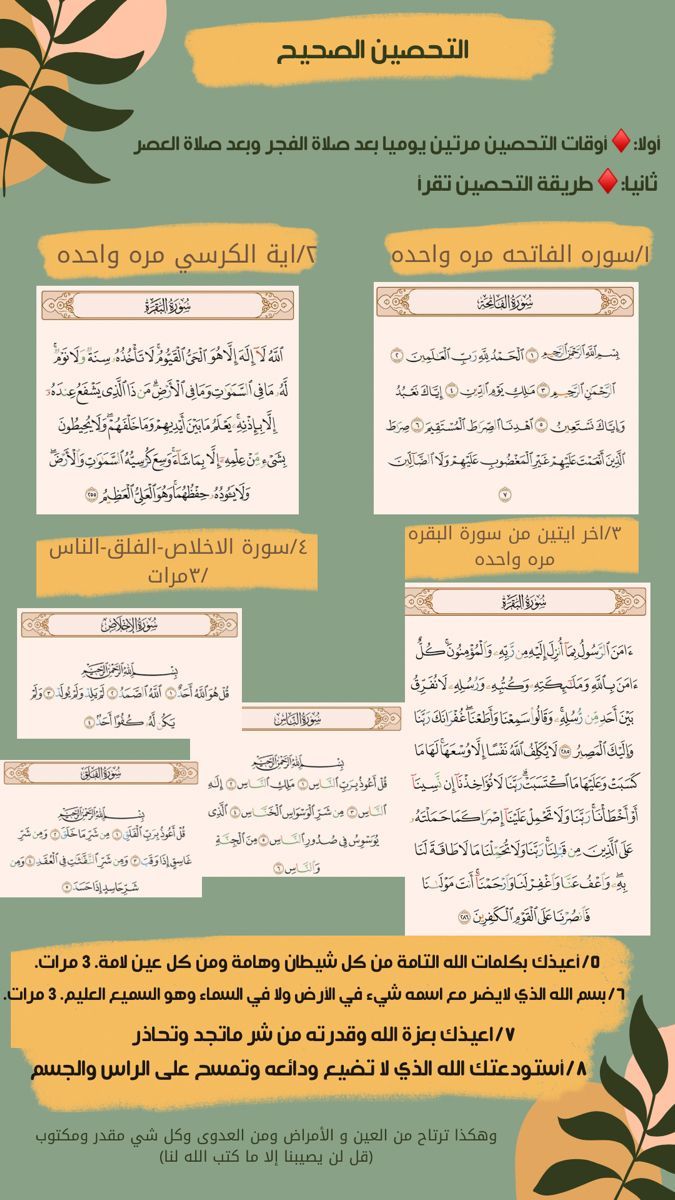 التحصين الصحيح
أولا:♦️أوقات التحصين مرتين يوميا بعد صلاة الفجر وبعد صلاة العصر
ثانيا:♦️طريقة التحصين تقرأ
١/سوره الفاتحه مره واحده
سُورَةُ الفَاتِحَةِ
بِسْمِ اللَّهِ الرَّحْمَٰنِ الرَّحِيمِ ١ الْحَمْدُ لِلَّهِ رَبِّ الْعَالَمِينَ ٢
الرَّحْمَٰنِ الرَّحِيمِ ٣ مَالِكِ يَوْمِ الدِّينِ ٤ إِيَّاكَ نَعْبُدُ
وَإِيَّاكَ نَسْتَعِينُ ٥ اهْدِنَا الصِّرَاطَ الْمُسْتَقِيمَ ٦ صِرَاطَ
الَّذِينَ أَنْعَمْتَ عَلَيْهِمْ غَيْرِ الْمَغْضُوبِ عَلَيْهِمْ وَلَا الضَّالِّينَ
٧
٢/اية الكرسي مره واحده
سُورَةُ البَقَرَةِ
اللَّهُ لَا إِلَٰهَ إِلَّا هُوَ الْحَيُّ الْقَيُّومُ ۚ لَا تَأْخُذُهُ سِنَةٌ وَلَا نَوْمٌ ۚ
لَّهُ مَا فِي السَّمَاوَاتِ وَمَا فِي الْأَرْضِ ۗ مَن ذَا الَّذِي يَشْفَعُ عِندَهُ
إِلَّا بِإِذْنِهِ ۚ يَعْلَمُ مَا بَيْنَ أَيْدِيهِمْ وَمَا خَلْفَهُمْ ۖ وَلَا يُحِيطُونَ
بِشَيْءٍ مِّنْ عِلْمِهِ إِلَّا بِمَا شَاءَ ۚ وَسِعَ كُرْسِيُّهُ السَّمَاوَاتِ وَالْأَرْضَ ۖ
وَلَا يَئُودُهُ حِفْظُهُمَا ۚ وَهُوَ الْعَلِيُّ الْعَظِيمُ ٢٥٥
٣/اخر ايتين من سورة البقره
مره واحده
سُورَةُ البَقَرَةِ
ءَامَنَ الرَّسُولُ بِمَا أُنزِلَ إِلَيْهِ مِن رَّبِّهِ وَالْمُؤْمِنُونَ ۚ كُلٌّ
ءَامَنَ بِاللَّهِ وَمَلَائِكَتِهِ وَكُتُبِهِ وَرُسُلِهِ لَا نُفَرِّقُ
بَيْنَ أَحَدٍ مِّن رُّسُلِهِ ۚ وَقَالُوا سَمِعْنَا وَأَطَعْنَا ۖ غُفْرَانَكَ رَبَّنَا
وَإِلَيْكَ الْمَصِيرُ ٢٨٥ لَا يُكَلِّفُ اللَّهُ نَفْسًا إِلَّا وُسْعَهَا ۚ لَهَا مَا
كَسَبَتْ وَعَلَيْهَا مَا اكْتَسَبَتْ ۗ رَبَّنَا لَا تُؤَاخِذْنَا إِن نَّسِينَا
أَوْ أَخْطَأْنَا ۚ رَبَّنَا وَلَا تَحْمِلْ عَلَيْنَا إِصْرًا كَمَا حَمَلْتَهُ
عَلَى الَّذِينَ مِن قَبْلِنَا ۚ رَبَّنَا وَلَا تُحَمِّلْنَا مَا لَا طَاقَةَ لَنَا
بِهِ ۖ وَاعْفُ عَنَّا وَاغْفِرْ لَنَا وَارْحَمْنَا ۚ أَنتَ مَوْلَانَا
فَانصُرْنَا عَلَى الْقَوْمِ الْكَافِرِينَ ٢٨٦
٤/سورة الاخلاص-الفلق-الناس
/٣مرات
سُورَةُ الإِخْلَاصِ
بِسْمِ اللَّهِ الرَّحْمَٰنِ الرَّحِيمِ
قُلْ هُوَ اللَّهُ أَحَدٌ ١ اللَّهُ الصَّمَدُ ٢ لَمْ يَلِدْ وَلَمْ يُولَدْ ٣ وَلَمْ
يَكُن لَّهُ كُفُوًا أَحَدٌ ٤
سُورَةُ النَّاسِ
بِسْمِ اللَّهِ الرَّحْمَٰنِ الرَّحِيمِ
قُلْ أَعُوذُ بِرَبِّ النَّاسِ ١ مَلِكِ النَّاسِ ٢ إِلَٰهِ
النَّاسِ ٣ مِن شَرِّ الْوَسْوَاسِ الْخَنَّاسِ ٤ الَّذِي
يُوَسْوِسُ فِي صُدُورِ النَّاسِ ٥ مِنَ الْجِنَّةِ
وَالنَّاسِ ٦
سُورَةُ الفَلَقِ
بِسْمِ اللَّهِ الرَّحْمَٰنِ الرَّحِيمِ
قُلْ أَعُوذُ بِرَبِّ الْفَلَقِ ١ مِن شَرِّ مَا خَلَقَ ٢ وَمِن شَرِّ
غَاسِقٍ إِذَا وَقَبَ ٣ وَمِن شَرِّ النَّفَّاثَاتِ فِي الْعُقَدِ ٤ وَمِن
شَرِّ حَاسِدٍ إِذَا حَسَدَ ٥
٥/أعيذك بكلمات الله التامة من كل شيطان وهامة ومن كل عين لامة. 3 مرات.
٦/بسم الله الذي لايضر مع اسمه شيء في الأرض ولا في السماء وهو السميع العليم. 3 مرات.
٧/اعيذك بعزة الله وقدرته من شر ماتجد وتحاذر
٨/أستودعتك الله الذي لا تضيع ودائعه وتمسح على الراس والجسم
وهكذا ترتاح من العين و الأمراض ومن العدوى وكل شي مقدر ومكتوب
(قل لن يصيبنا إلا ما كتب الله لنا)